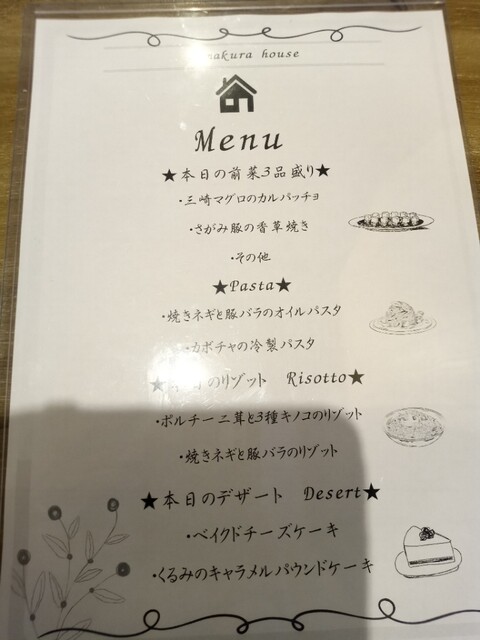 makura house
Menu
★本日の前菜3品盛り★
・三崎マグロのカルパッチョ
・さがみ豚の香草焼き
・その他
★Pasta★
・焼きネギと豚バラのオイルパスタ
・カボチャの冷製パスタ
★ のリゾット Risotto★
・ポルチーニ茸と3種キノコのリゾット
・焼きネギと豚バラのリゾット
★本日のデザート Desert★
・ベイクドチーズケーキ
・くるみのキャラメルパウンドケーキ